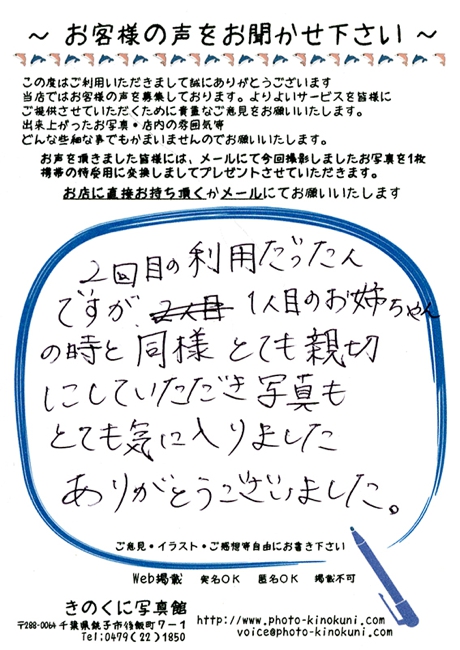 ～ お客様の声をお聞かせ下さい ～
この度はご利用いただきまして誠にありがとうございます
当店ではお客様の声を募集しております。よりよいサービスを皆様に
ご提供させていただくために貴重なご意見をお願いいたします。
出来上がったお写真・店内の雰囲気等
どんな些細な事でもかまいませんのでお願いいたします。
お声を頂きました皆様には、メールにて今回撮影しましたお写真を1枚
携帯の待受用に変換しましてプレゼントさせていただきます。
お店に直接お持ち頂くかメールにてお願いいたします
2回目の利用だったん
ですが、2人目 1人目のお姉ちゃん
の時と同様とても親切
にしていただき写真も
とても気に入りました
ありがとうございました。
ご意見・イラスト・ご感想等自由にお書き下さい
Web掲載 実名OK 匿名OK 掲載不可
きのくに写真館
〒288-0064 千葉県銚子市後飯町7-1
Tel:0479(22)1850
http://www.photo-kinokuni.com/
voice@photo-kinokuni.com